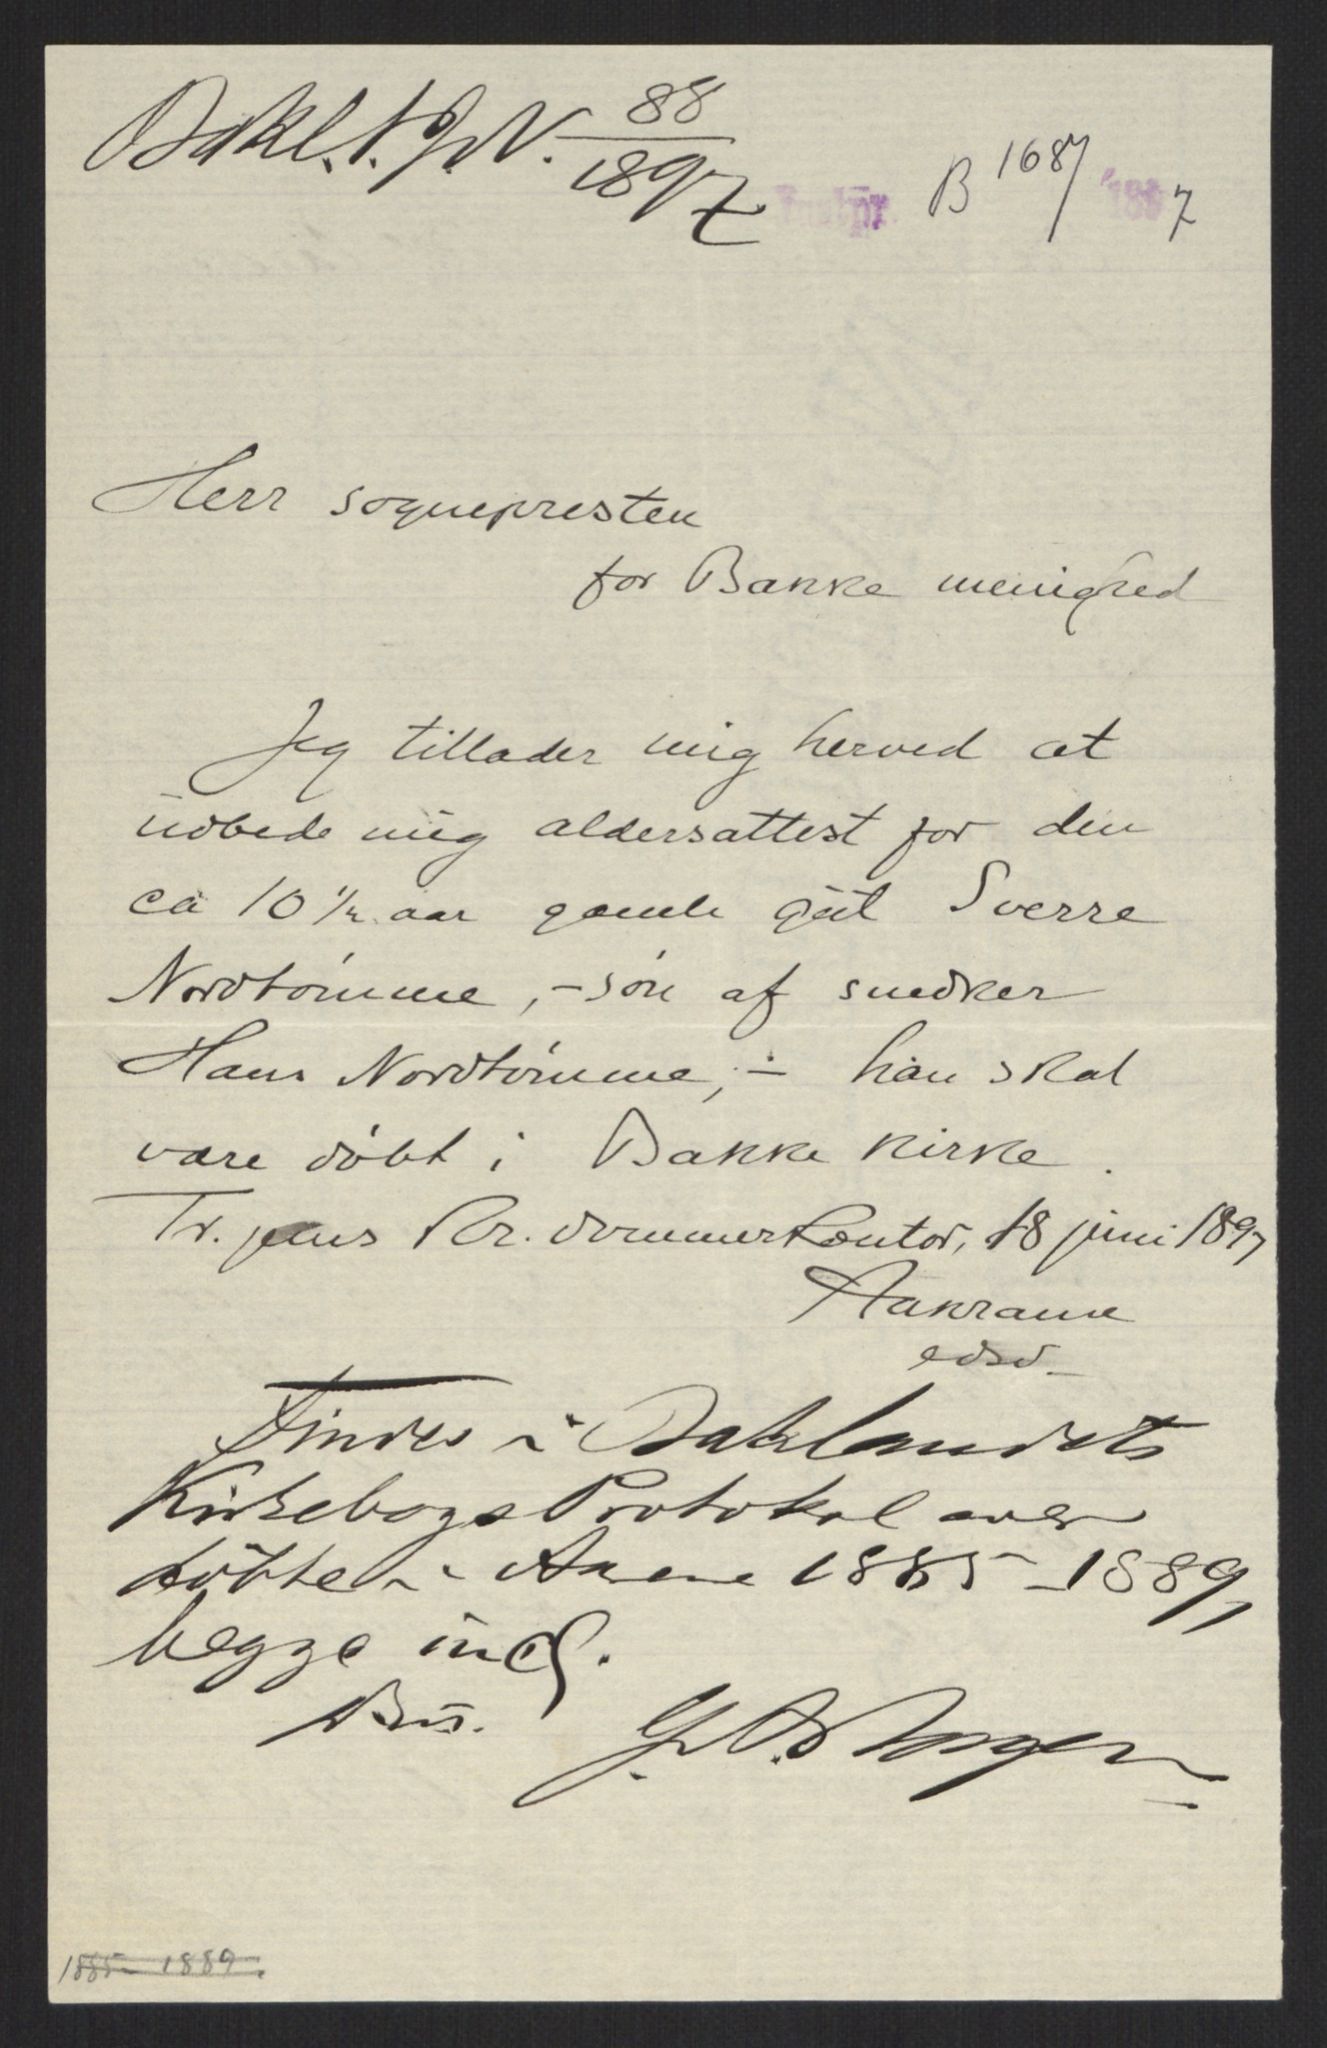 Bakl. S. J. N. 88/1897
B 1687 1897
Herr sognepresten
for Bakke menighed
Jeg tillader mig herved at
udbede mig aldersattest for den
ca 10 ½ aar gamle gut Sverre
Nordtømme, - søn af snedker
Hans Nordtømme, - han skal
være døbt i Bakke kirke.
Tr.hjems Kr. dommerkontor, 18 juni 1897
Aakrann
edsv.
Findes i Baklandets
Kirkebogs Protokol over
døbte i Aarene 1885-1889,
begge incl.
1885-1889.